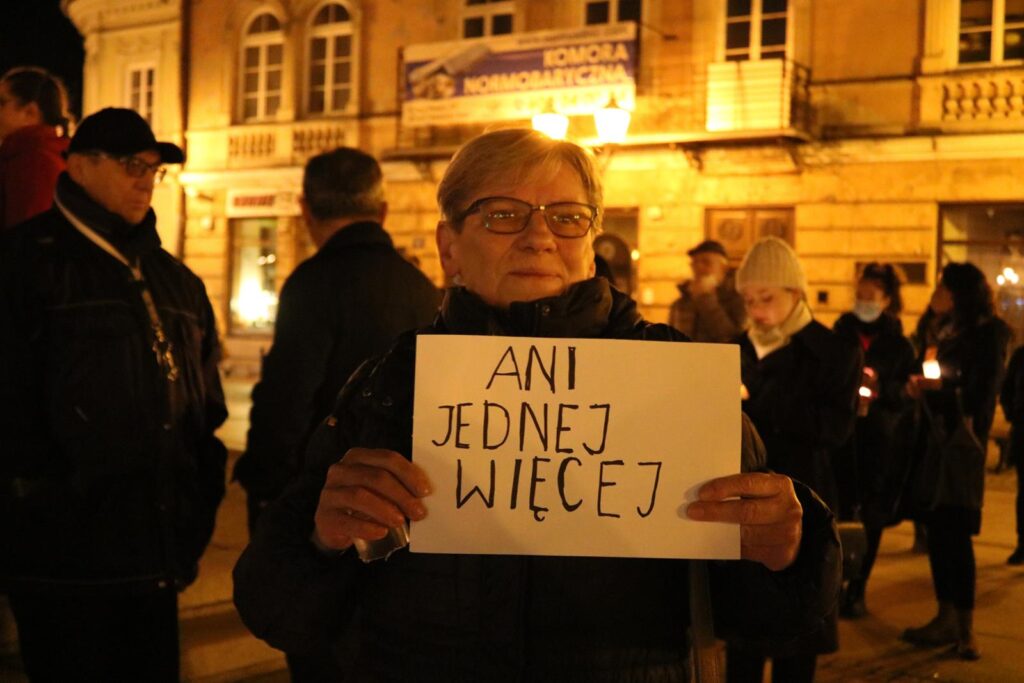 KOMORA
NORMOBARYCZNA
ANI
JEDNEJ
WIĘCEJ